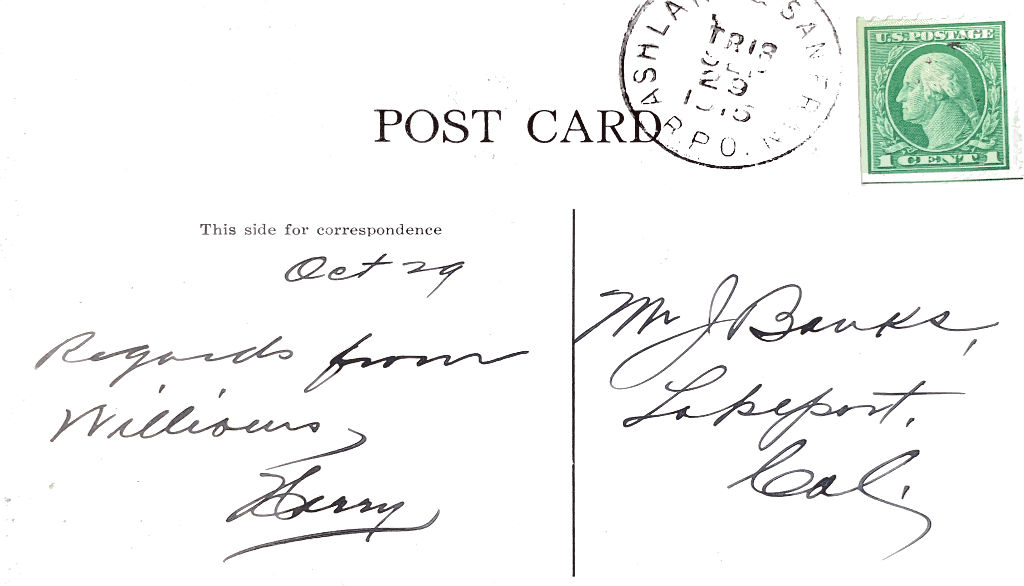 ASHLAND & SAN FRAN.
TR 18
29
R.P.O.
U.S. POSTAGE
1 CENT 1
POST CARD
This side for correspondence
Oct 29
Regards from
Williams,
Harry
Mr J Banks,
Lakeport,
Cal.